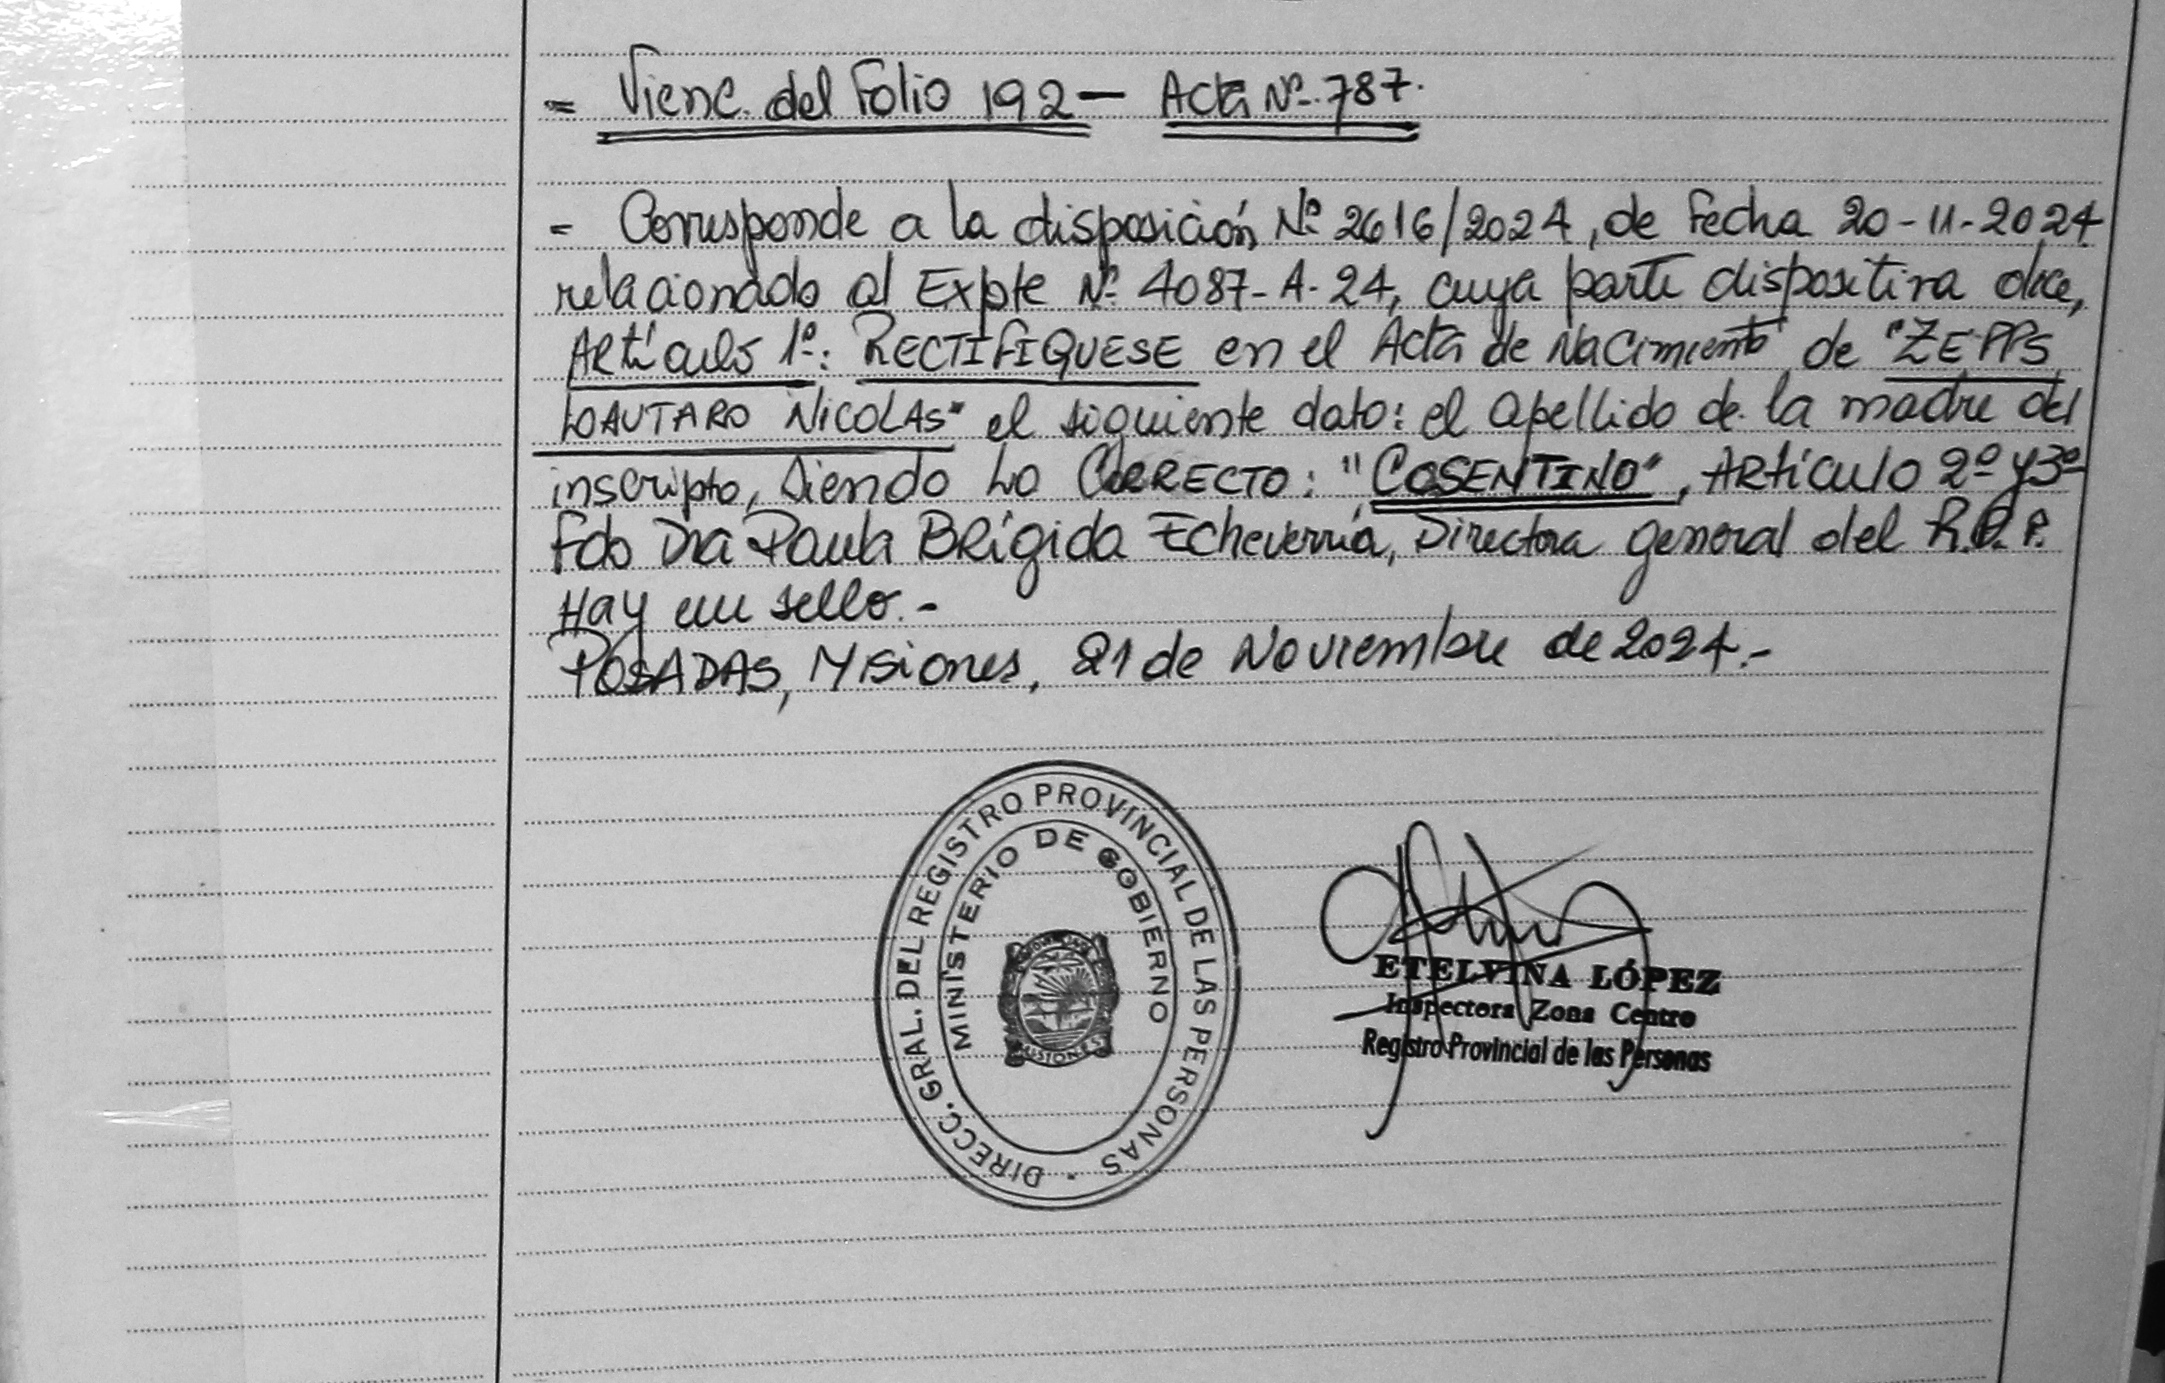 = Viene del Folio 192 — Acta Nº 787.
- Corresponde a la disposición Nº 2616/2024, de Fecha 20-11-2024
relacionado al Expte Nº 4087-A-24, cuya parte dispositiva dice,
Artículo 1º: RECTIFIQUESE en el Acta de Nacimiento de "ZEPPS
LOAUTARO NICOLAS" el siguiente dato: el apellido de la madre del
inscripto, siendo lo CORRECTO: "COSENTINO", ARtículo 2º y 3º
Fdo Dra Paula BRígida Echeverría, Directora general del R.P.P.
Hay un sello.-
POSADAS, Misiones, 21 de Noviembre de 2024.-
DIRECC. GRAL. DEL REGISTRO PROVINCIAL DE LAS PERSONAS
MINISTERIO DE GOBIERNO
MISIONES
ETELVINA LÓPEZ
Inspectora Zona Centro
Registro Provincial de las Personas